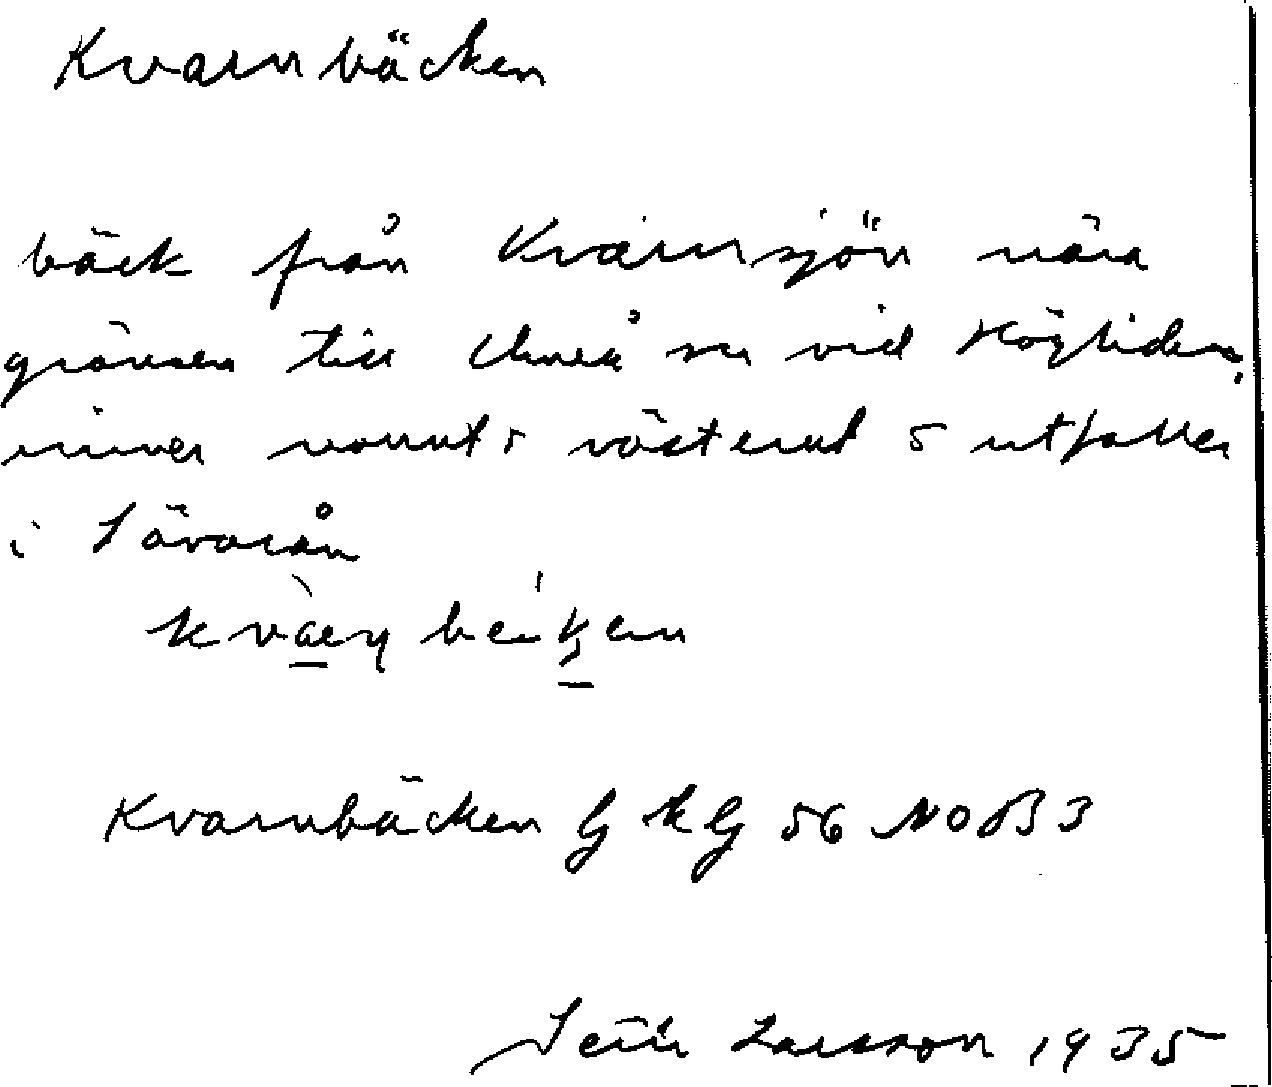 Kvarnbäcken
bäck från Kvarnsjön nära
gränsen till Umeå sn vid Högliden,
rinner norrut o västerut o utfaller
i Sävarån
Kvarnbäcken G K G 56 NO B3
Larsson 1935